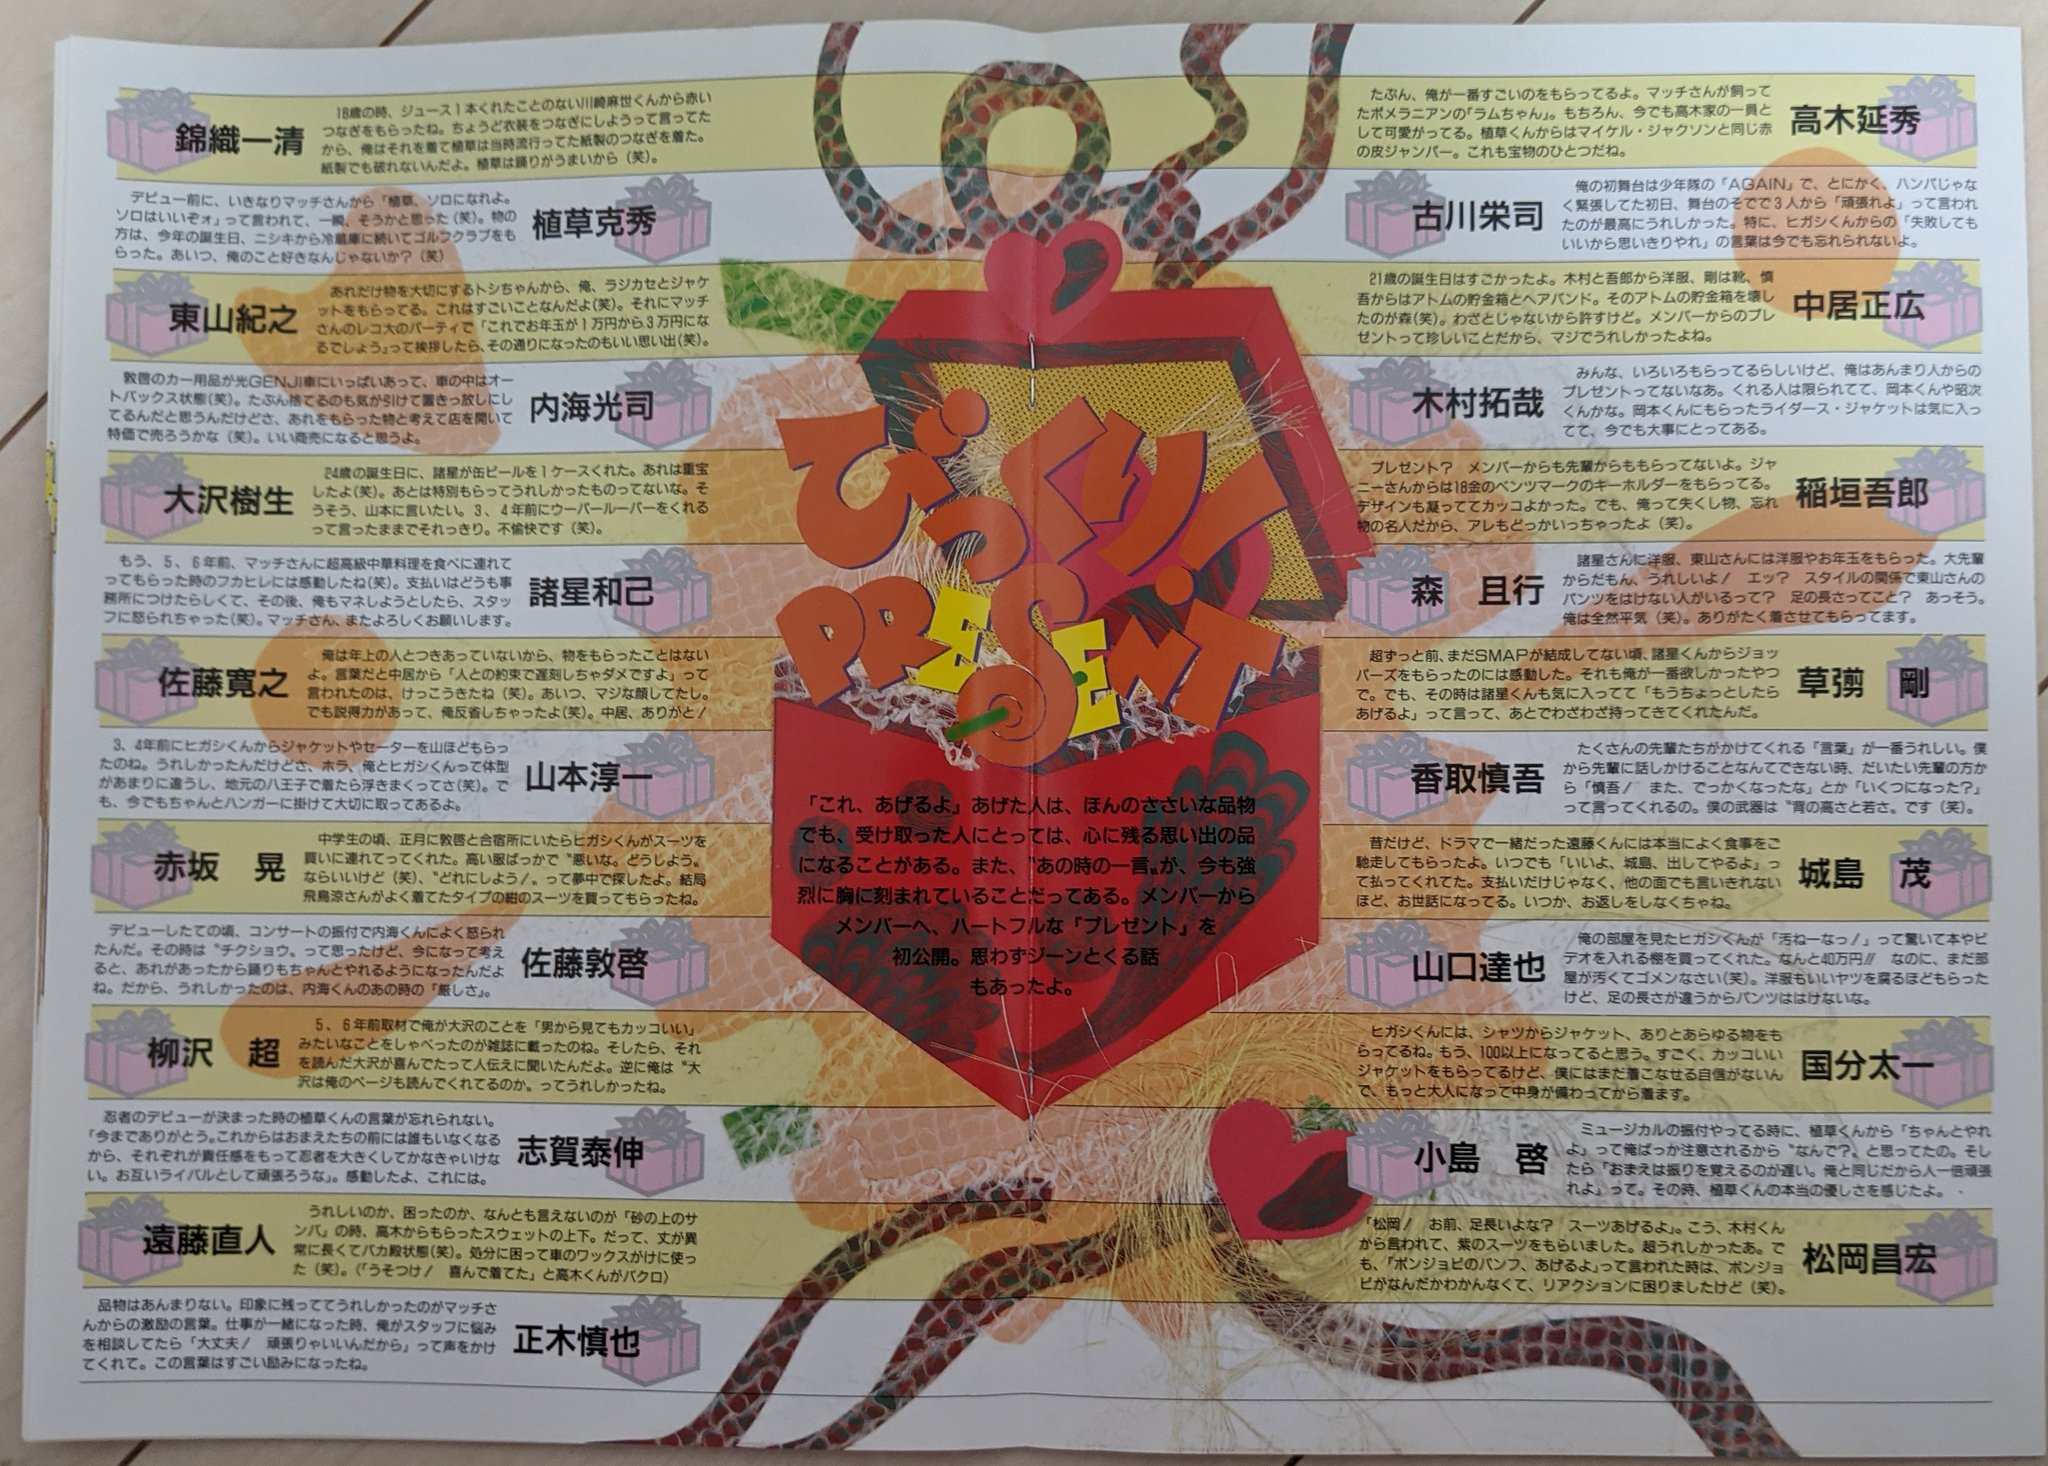 錦織一清
18歳の時、ジュース1本くれたことのない川﨑麻世くんから赤い
つなぎをもらったね。ちょうど衣装をつなぎにしようって言ってた
から、俺はそれを着て植草は当時流行ってた紙製のつなぎを着た。
紙製でも破れないんだよ。植草は踊りがうまいから（笑）。
植草克秀
デビュー前に、いきなりマッチさんから「植草、ソロになれよ。
ソロはいいぞォ」って言われて、一瞬、そうかと思った（笑）。物の
方は、今年の誕生日、ニシキから冷蔵庫に続いてゴルフクラブをも
らった。あいつ、俺のこと好きなんじゃないか？（笑）
東山紀之
あれだけ物を大切にするトシちゃんから、俺、ラジカセとジャケ
ットをもらってる。これはすごいことなんだよ（笑）。それにマッチ
さんのレコ大のパーティで「これでお年玉が1万円から3万円にな
るでしょう」って挨拶したら、その通りになったのもいい思い出（笑）。
内海光司
敦啓のカー用品が光GENJI車にいっぱいあって、車の中はオー
トバックス状態（笑）。たぶん捨てるのも気が引けて置きっ放しにし
てるんだと思うんだけどさ、あれをもらった物と考えて店を開いて
特価で売ろうかな（笑）。いい商売になると思うよ。
大沢樹生
24歳の誕生日に、諸星が缶ビールを1ケースくれた。あれは重宝
したよ（笑）。あとは特別もらってうれしかったものってないな。そ
うそう、山本に言いたい。3、4年前にウーパールーパーをくれる
って言ったままでそれっきり。不愉快です（笑）。
諸星和己
もう、5、6年前、マッチさんに超高級中華料理を食べに連れて
ってもらった時のフカヒレには感動したね（笑）。支払いはどうも事
務所につけたらしくて、その後、俺もマネしようとしたら、スタッ
フに怒られちゃった（笑）。マッチさん、またよろしくお願いします。
佐藤寛之
俺は年上の人とつきあっていないから、物をもらったことはない
よ。言葉だと中居から「人との約束で遅刻しちゃダメですよ」って
言われたのは、けっこうきたね（笑）。あいつ、マジな顔してたし。
でも説得力があって、俺反省しちゃったよ（笑）。中居、ありがと！
山本淳一
3、4年前にヒガシくんからジャケットやセーターを山ほどもらっ
たのね。うれしかったんだけどさ、ホラ、俺とヒガシくんって体型
があまりに違うし、地元の八王子で着たら浮きまくってさ（笑）。で
も、今でもちゃんとハンガーに掛けて大切に取ってあるよ。
赤坂　晃
中学生の頃、正月に敦啓と合宿所にいたらヒガシくんがスーツを
買いに連れてってくれた。高い服ばっかで〝悪いな。どうしよう〟
ならいいけど（笑）、〝どれにしよう！〟って夢中で探したよ。結局
飛鳥涼さんがよく着てたタイプの紺のスーツを買ってもらったね。
佐藤敦啓
デビューしたての頃、コンサートの振付で内海くんによく怒られ
たんだ。その時は〝チクショウ〟って思ったけど、今になって考え
ると、あれがあったから踊りもちゃんとやれるようになったんだよ
ね。だから、うれしかったのは、内海くんのあの時の「厳しさ」。
柳沢　超
5、6年前取材で俺が大沢のことを「男から見てもカッコいい」
みたいなことをしゃべったのが雑誌に載ったのね。そしたら、それ
を読んだ大沢が喜んでたって人伝えに聞いたんだよ。逆に俺は〝大
沢は俺のページも読んでくれてるのか〟ってうれしかったね。
志賀泰伸
忍者のデビューが決まった時の植草くんの言葉が忘れられない。
「今までありがとう。これからはおまえたちの前には誰もいなくなる
から、それぞれが責任感をもって忍者を大きくしてかなきゃいけな
い。お互いライバルとして頑張ろうな」。感動したよ、これには。
遠藤直人
うれしいのか、困ったのか、なんとも言えないのが「砂の上のサ
ンバ」の時、高木からもらったスウェットの上下。だって、丈が異
常に長くてバカ殿状態（笑）。処分に困って車のワックスがけに使っ
た（笑）。（「うそつけ！　喜んで着てた」と高木くんがバクロ）
正木慎也
品物はあんまりない。印象に残っててうれしかったのがマッチさ
んからの激励の言葉。仕事が一緒になった時、俺がスタッフに悩み
を相談してたら「大丈夫！　頑張りゃいいんだから」って声をかけ
てくれて。この言葉はすごい励みになったね。
びっくり！
PRESENT
「これ、あげるよ」あげた人は、ほんのささいな品物
でも、受け取った人にとっては、心に残る思い出の品
になることがある。また、〝あの時の一言〟が、今も強
烈に胸に刻まれていることだってある。メンバーから
メンバーへ、ハートフルな「プレゼント」を
初公開。思わずジーンとくる話
もあったよ。
高木延秀
たぶん、俺が一番すごいのをもらってるよ。マッチさんが飼って
たポメラニアンの「ラムちゃん」。もちろん、今でも高木家の一員と
して可愛がってる。植草くんからはマイケル・ジャクソンと同じ赤
の皮ジャンパー。これも宝物のひとつだね。
古川栄司
俺の初舞台は少年隊の「AGAIN」で、とにかく、ハンパじゃな
く緊張してた初日、舞台のそでで3人から「頑張れよ」って言われ
たのが最高にうれしかった。特に、ヒガシくんからの「失敗しても
いいから思いきりやれ」の言葉は今でも忘れられないよ。
中居正広
21歳の誕生日はすごかったよ。木村と吾郎から洋服、剛は靴、慎
吾からはアトムの貯金箱とヘアバンド。そのアトムの貯金箱を壊し
たのが森（笑）。わざとじゃないから許すけど。メンバーからのプレ
ゼントって珍しいことだから、マジでうれしかったよね。
木村拓哉
みんな、いろいろもらってるらしいけど、俺はあんまり人からの
プレゼントってないなあ。くれる人は限られてて、岡本くんや昭次
くんかな。岡本くんにもらったライダース・ジャケットは気に入っ
てて、今でも大事にとってある。
稲垣吾郎
プレゼント？　メンバーからも先輩からももらってないよ。ジャ
ニーさんからは18金のベンツマークのキーホルダーをもらってる。
デザインも凝っててカッコよかった。でも、俺って失くし物、忘れ
物の名人だから、アレもどっかいっちゃったよ（笑）。
森　且行
諸星さんに洋服、東山さんには洋服やお年玉をもらった。大先輩
からだもん、うれしいよ！　エッ？　スタイルの関係で東山さんの
パンツをはけない人がいるって？　足の長さってこと？　あっそう。
俺は全然平気（笑）。ありがたく着させてもらってます。
草彅　剛
超ずっと前、まだSMAPが結成してない頃、諸星くんからジョッ
パーズをもらったのには感動した。それも俺が一番欲しかったやつ
で。でも、その時は諸星くんも気に入ってて「もうちょっとしたら
あげるよ」って言って、あとでわざわざ持ってきてくれたんだ。
香取慎吾
たくさんの先輩たちがかけてくれる「言葉」が一番うれしい。僕
から先輩に話しかけることなんてできない時、だいたい先輩の方か
ら「慎吾！　また、でっかくなったな」とか「いくつになった？」
って言ってくれるの。僕の武器は〝背の高さと若さ〟です（笑）。
城島　茂
昔だけど、ドラマで一緒だった遠藤くんには本当によく食事をご
馳走してもらったよ。いつでも「いいよ、城島、出してやるよ」っ
て払ってくれてた。支払いだけじゃなく、他の面でも言いきれない
ほど、お世話になってる。いつか、お返しをしなくちゃね。
山口達也
俺の部屋を見たヒガシくんが「汚ねーなっ！」って驚いて本やビ
デオを入れる棚を買ってくれた。なんと40万円!!　なのに、まだ部
屋が汚くてゴメンなさい（笑）。洋服もいいヤツを腐るほどもらった
けど、足の長さが違うからパンツははけないな。
国分太一
ヒガシくんには、シャツからジャケット、ありとあらゆる物をも
らってるね。もう、100以上になってると思う。すごく、カッコいい
ジャケットをもらってるけど、僕にはまだ着こなせる自信がないん
で、もっと大人になって中身が備わってから着ます。
小島　啓
ミュージカルの振付やってる時に、植草くんから「ちゃんとやれ
よ」って俺ばっか注意されるから〝なんで？〟と思ってたの。そし
たら「おまえは振りを覚えるのが遅い。俺と同じだから人一倍頑張
れよ」って。その時、植草くんの本当の優しさを感じたよ。
松岡昌宏
「松岡！　お前、足長いよな？　スーツあげるよ」。こう、木村くん
から言われて、紫のスーツをもらいました。超うれしかったあ。で
も、「ボンジョビのパンフ、あげるよ」って言われた時は、ボンジョ
ビがなんだかわかんなくて、リアクションに困りましたけど（笑）。